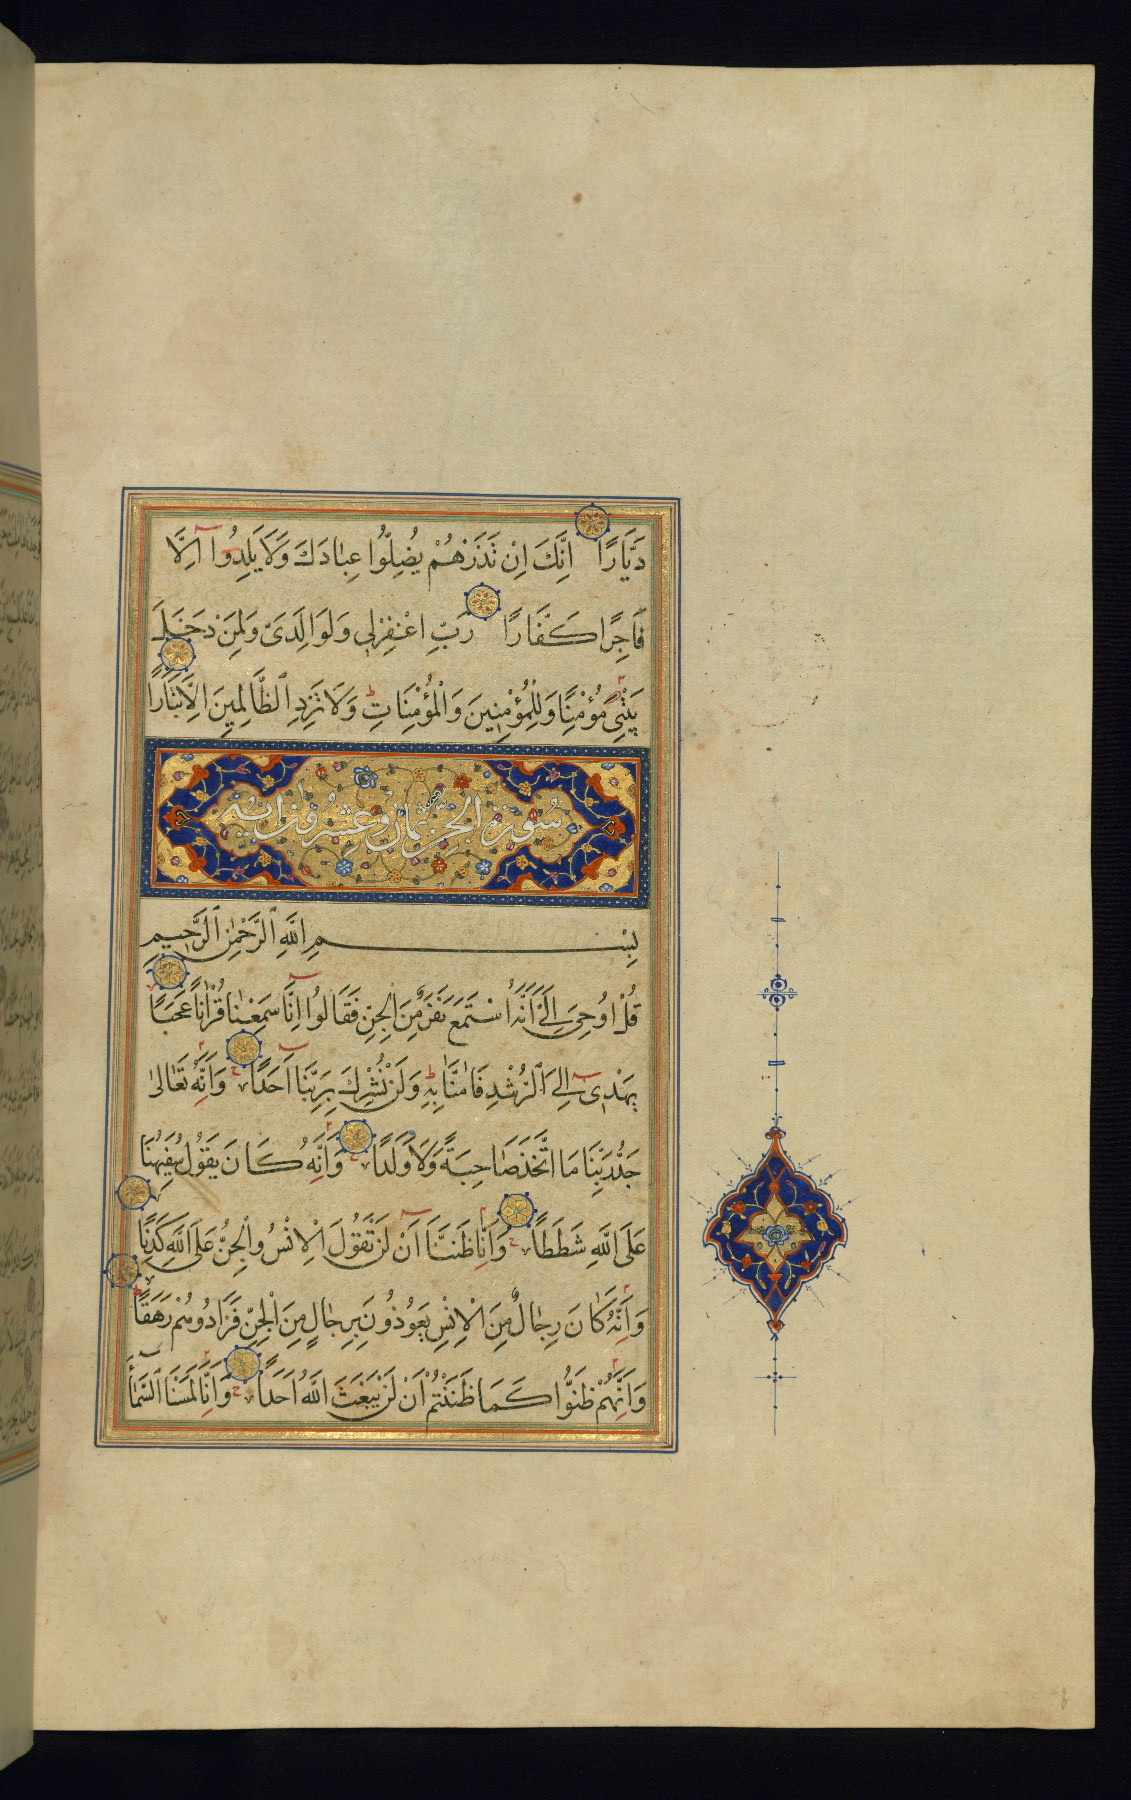 دَيَّارًا اِنَّكَ اِنْ تَذَرْهُمْ يُضِلُّوا عِبَادَكَ وَلَا يَلِدُوا اِلَّا
فَاجِرًا كَفَّارًا رَبِّ اغْفِرْلِي وَلِوَالِدَيَّ وَلِمَنْ دَخَلَ
بَيْتِيَ مُؤْمِنًا وَلِلْمُؤْمِنِينَ وَالْمُؤْمِنَاتِ وَلَا تَزِدِ الظَّالِمِينَ اِلَّا تَبَارًا
سورة الجن ثمان وعشرون اية
بِسْمِ اللهِ الرَّحْمٰنِ الرَّحِيمِ
قُلْ اُوحِيَ اِلَيَّ اَنَّهُ اسْتَمَعَ نَفَرٌ مِنَ الْجِنِّ فَقَالُوا اِنَّا سَمِعْنَا قُرْاٰنًا عَجَبًا
يَهْدِي اِلَى الرُّشْدِ فَاٰمَنَّا بِهِ وَلَنْ نُشْرِكَ بِرَبِّنَا اَحَدًا وَاَنَّهُ تَعَالٰى
جَدُّ رَبِّنَا مَا اتَّخَذَ صَاحِبَةً وَلَا وَلَدًا وَاَنَّهُ كَانَ يَقُولُ سَفِيهُنَا
عَلَى اللهِ شَطَطًا وَاَنَّا ظَنَنَّا اَنْ لَنْ تَقُولَ الْاِنْسُ وَالْجِنُّ عَلَى اللهِ كَذِبًا
وَاَنَّهُ كَانَ رِجَالٌ مِنَ الْاِنْسِ يَعُوذُونَ بِرِجَالٍ مِنَ الْجِنِّ فَزَادُوهُمْ رَهَقًا
وَاَنَّهُمْ ظَنُّوا كَمَا ظَنَنْتُمْ اَنْ لَنْ يَبْعَثَ اللهُ اَحَدًا وَاَنَّا لَمَسْنَا السَّمَاءَ